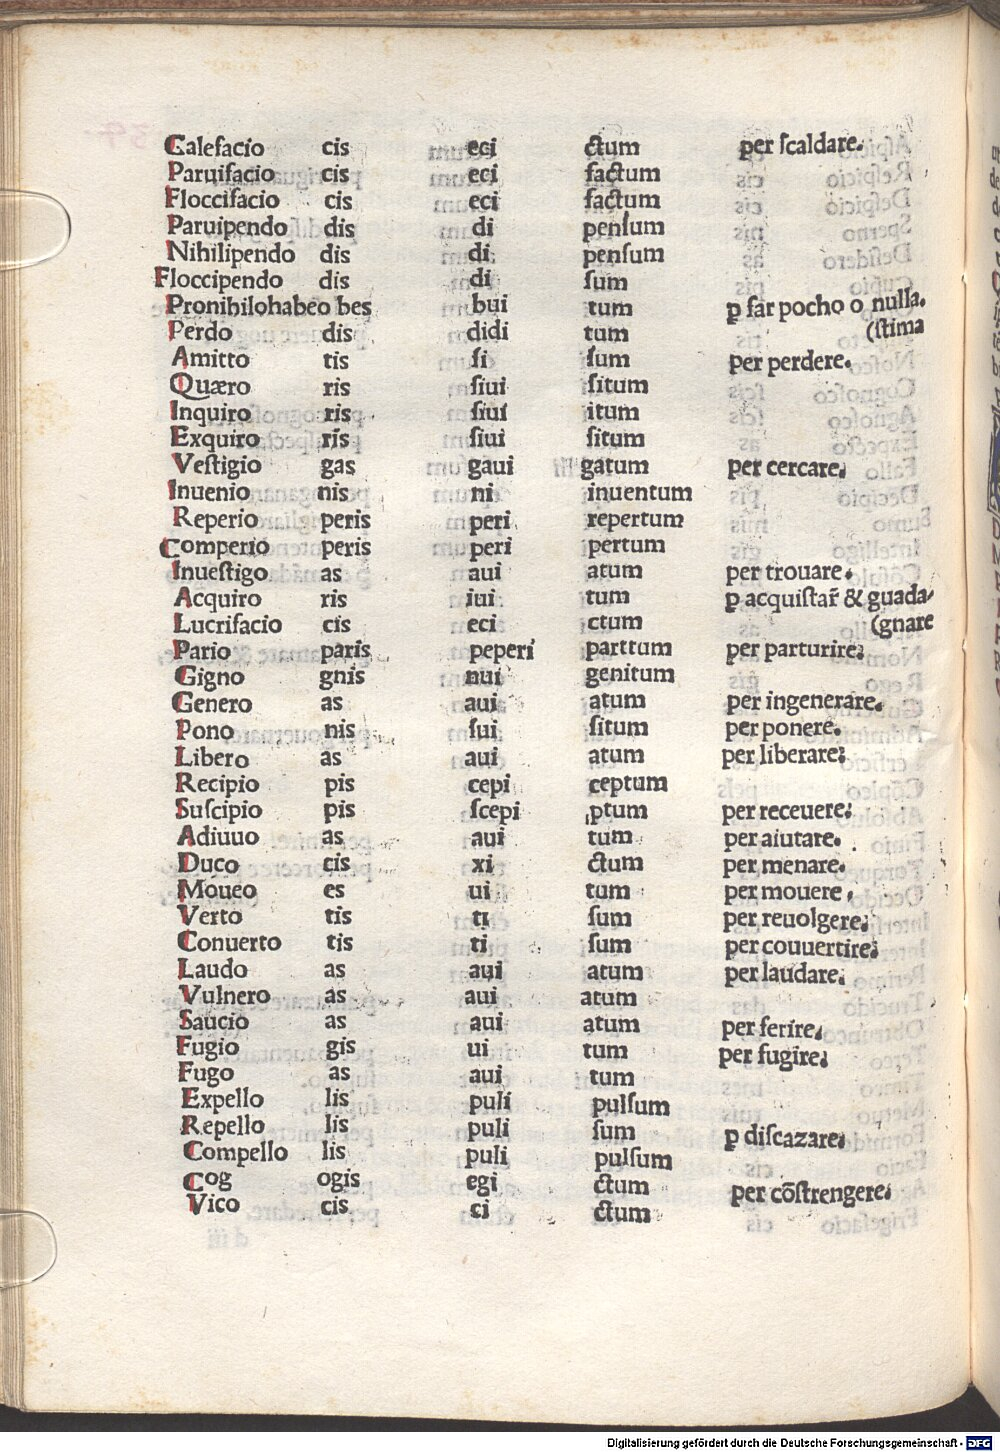 Calefacio cis eci ctum per ſcaldare.
Paruifacio cis eci factum
Floccifacio cis eci factum
Paruipendo dis di penſum
Nihilipendo dis di penſum
Floccipendo dis di ſum
Pronihilohabeo bes bui tum ꝑ far pocho o nulla.
Perdo dis didi tum (ſtima
Amitto tis ſi ſum per perdere.
Quæro ris ſiui ſitum
Inquiro ris ſiui itum
Exquiro ris ſiui ſitum
Veſtigio gas gaui gatum per cercare.
Inuenio nis ni inuentum
Reperio peris peri repertum
Comperio peris peri pertum
Inueſtigo as aui atum per trouare.
Acquiro ris iui tum ꝑ acquiſtar̃ & guada-
Lucrifacio cis eci ctum (gnare
Pario paris peperi parttum per parturire.
Gigno gnis nui genitum
Genero as aui atum per ingenerare.
Pono nis ſui ſitum per ponere.
Libero as aui atum per liberare.
Recipio pis cepi ceptum
Suſcipio pis ſcepi ptum per receuere.
Adiuuo as aui tum per aiutare.
Duco cis xi ctum per menare.
Moueo es ui tum per mouere.
Verto tis ti ſum per reuolgere.
Conuerto tis ti ſum per couuertire.
Laudo as aui atum per laudare.
Vulnero as aui atum
Saucio as aui atum per ferire.
Fugio gis ui tum per fugire.
Fugo as aui tum
Expello lis puli pulſum
Repello lis puli ſum ꝑ diſcazare.
Compello lis puli pulſum
Cog ogis egi ctum per cõſtrengere.
Vico cis ci ctum
Digitalisierung gefördert durch die Deutsche Forschungsgemeinschaft - DFG